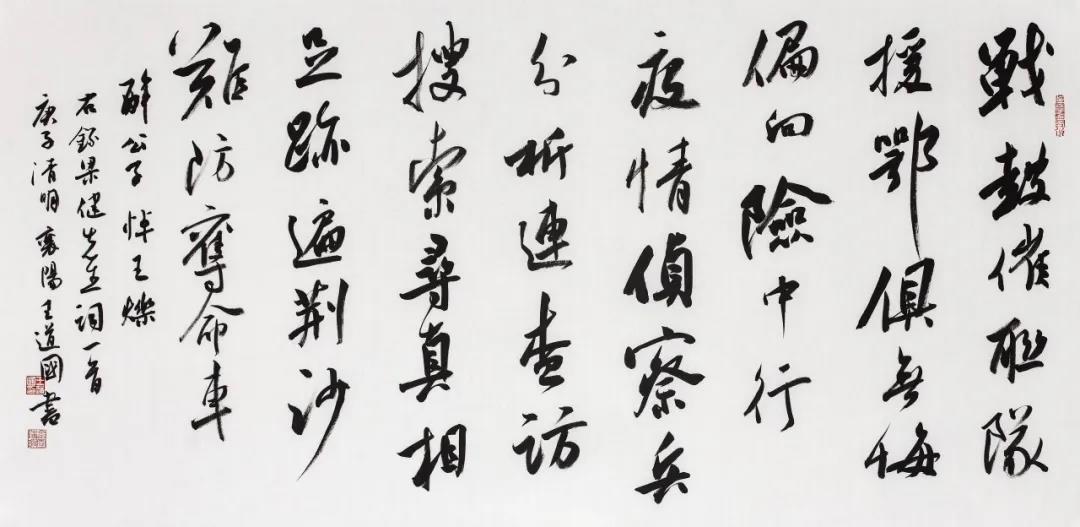 戰鼓催聯隊
援鄂俱無悔
偏向險中行
疫情偵察兵
分析連查訪
搜索尋真相
足跡遍荆沙
難防奪命車
醉公子悼王燦
右録梁健先生詞一首
庚子清明襄陽王道國書